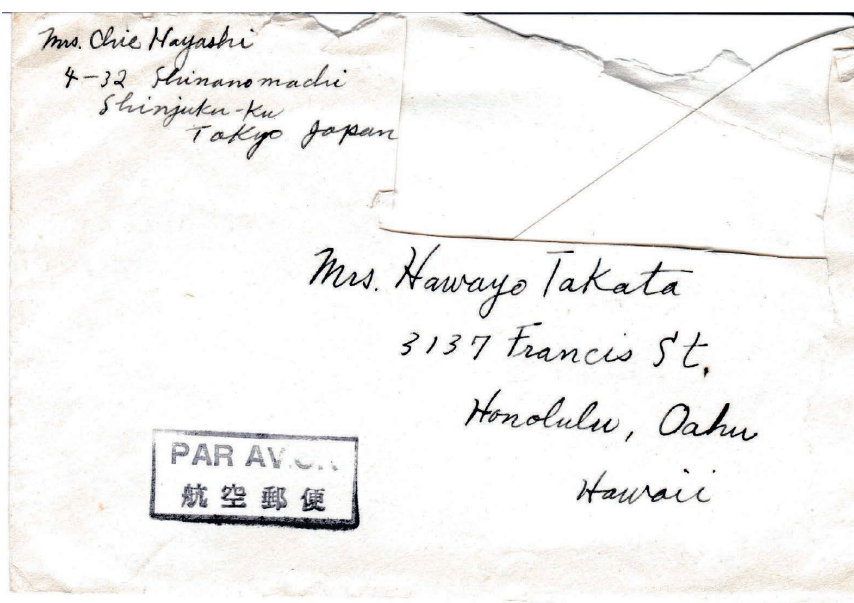 Mrs. Chie Hayashi
4-32 Shinanomachi
Shinjuku-Ku
Tokyo Japan
Mrs. Hawayo Takata
3137 Francis St.
Honolulu, Oahu
Hawaii
PAR AVION
航空郵便